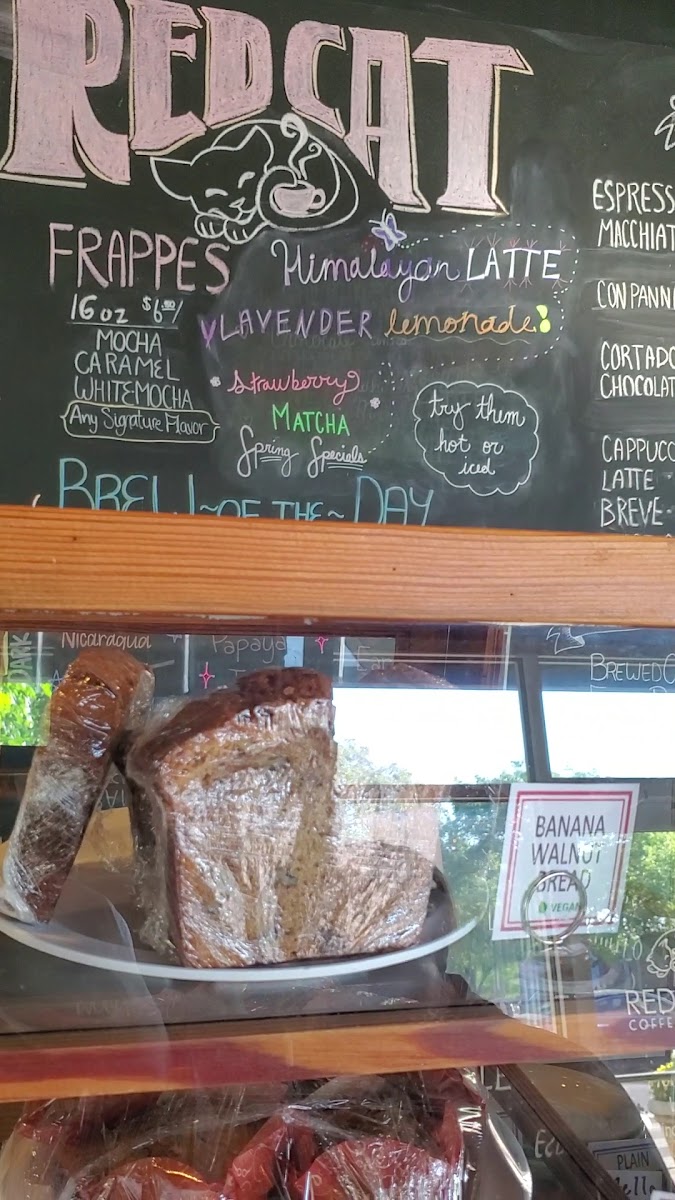 RED CAT
FRAPPES
16oz $6.00/
MOCHA
CARAMEL
WHITEMOCHA
Any Signature Flavor
Himalayan LATTE
LAVENDER lemonade
Strawberry
MATCHA
Spring Specials
try them
hot or
iced
ESPRESS
MACCHIAT
CON PANN
CORTADO
CHOCOLAT
CAPPUCC
LATTE
BREVE
BREW ~OF THE~ DAY
DARK
Nicaragua
Papaya
BREWED
BANANA
WALNUT
BREAD
VEGAN
RED
COFFE
PLAIN